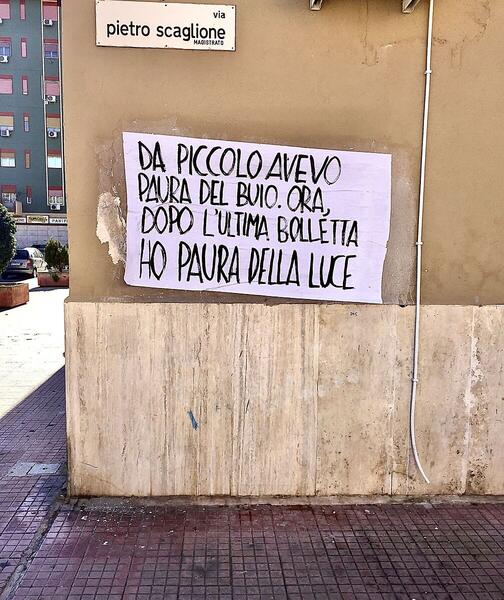 via
pietro scaglione
MAGISTRATO
DA PICCOLO AVEVO
PAURA DEL BUIO. ORA,
DOPO L'ULTIMA BOLLETTA
HO PAURA DELLA LUCE